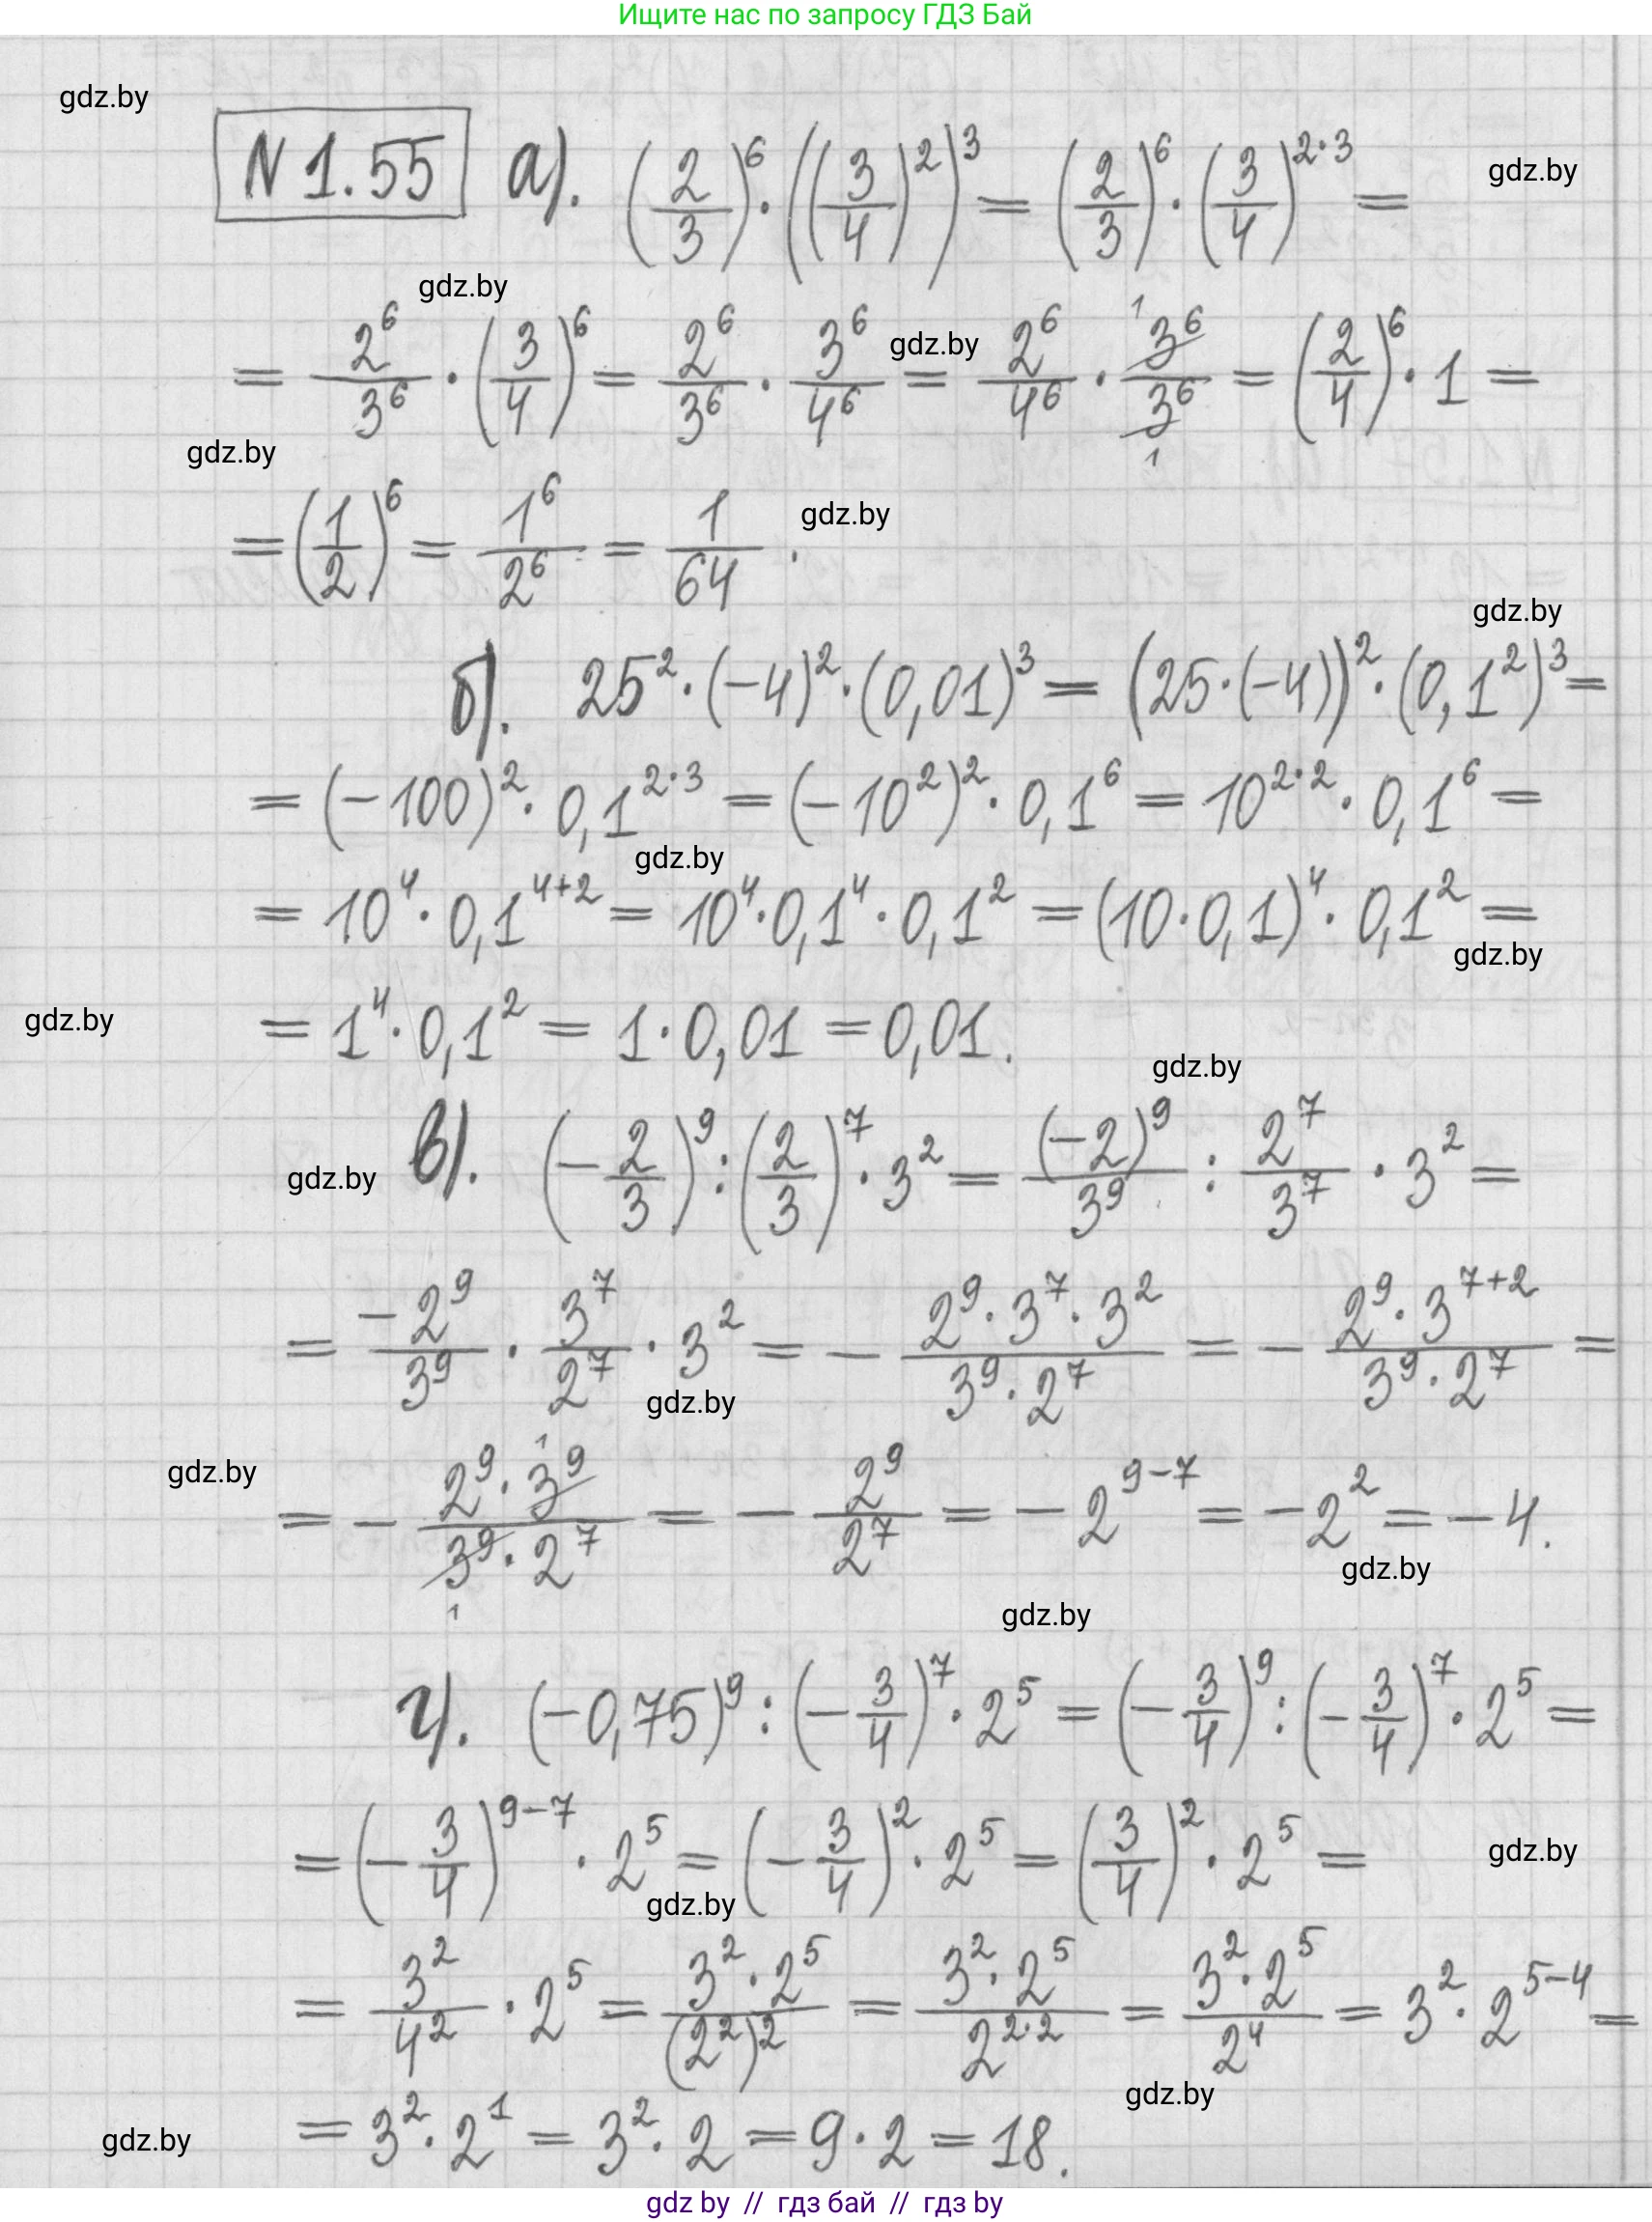 Ищите нас по запросу ГДЗ Бай
gdz.by
N 1.55 а). (2/3)^6 · ((3/4)^2)^3 = (2/3)^6 · (3/4)^{2·3} =
gdz.by
gdz.by
= 2^6/3^6 · (3/4)^6 = 2^6/3^6 · 3^6/4^6 = 2^6/4^6 · 3^6/3^6 = (2/4)^6 · 1 =
gdz.by
gdz.by
= (1/2)^6 = 1^6/2^6 = 1/64 .
gdz.by
gdz.by
б). 25^2 · (-4)^2 · (0,01)^3 = (25 · (-4))^2 · (0,1^2)^3 =
= (-100)^2 · 0,1^{2·3} = (-10^2)^2 · 0,1^6 = 10^{2·2} · 0,1^6 =
gdz.by
= 10^4 · 0,1^{4+2} = 10^4 · 0,1^4 · 0,1^2 = (10 · 0,1)^4 · 0,1^2 =
gdz.by
gdz.by
= 1^4 · 0,1^2 = 1 · 0,01 = 0,01.
gdz.by
gdz.by
в). (-2/3)^9 : (2/3)^7 · 3^2 = (-2)^9/3^9 : 2^7/3^7 · 3^2 =
= -2^9/3^9 · 3^7/2^7 · 3^2 = - 2^9 · 3^7 · 3^2/3^9 · 2^7 = - 2^9 · 3^{7+2}/3^9 · 2^7 =
gdz.by
gdz.by
= - 2^9 · 3^9/3^9 · 2^7 = - 2^9/2^7 = - 2^{9-7} = -2^2 = -4.
gdz.by
gdz.by
г). (-0,75)^9 : (-3/4)^7 · 2^5 = (-3/4)^9 : (-3/4)^7 · 2^5 =
= (-3/4)^{9-7} · 2^5 = (-3/4)^2 · 2^5 = (3/4)^2 · 2^5 =
gdz.by
gdz.by
= 3^2/4^2 · 2^5 = 3^2 · 2^5/(2^2)^2 = 3^2 · 2^5/2^{2·2} = 3^2 · 2^5/2^4 = 3^2 · 2^{5-4} =
gdz.by
gdz.by
= 3^2 · 2^1 = 3^2 · 2 = 9 · 2 = 18.
gdz by // гдз бай // гдз by